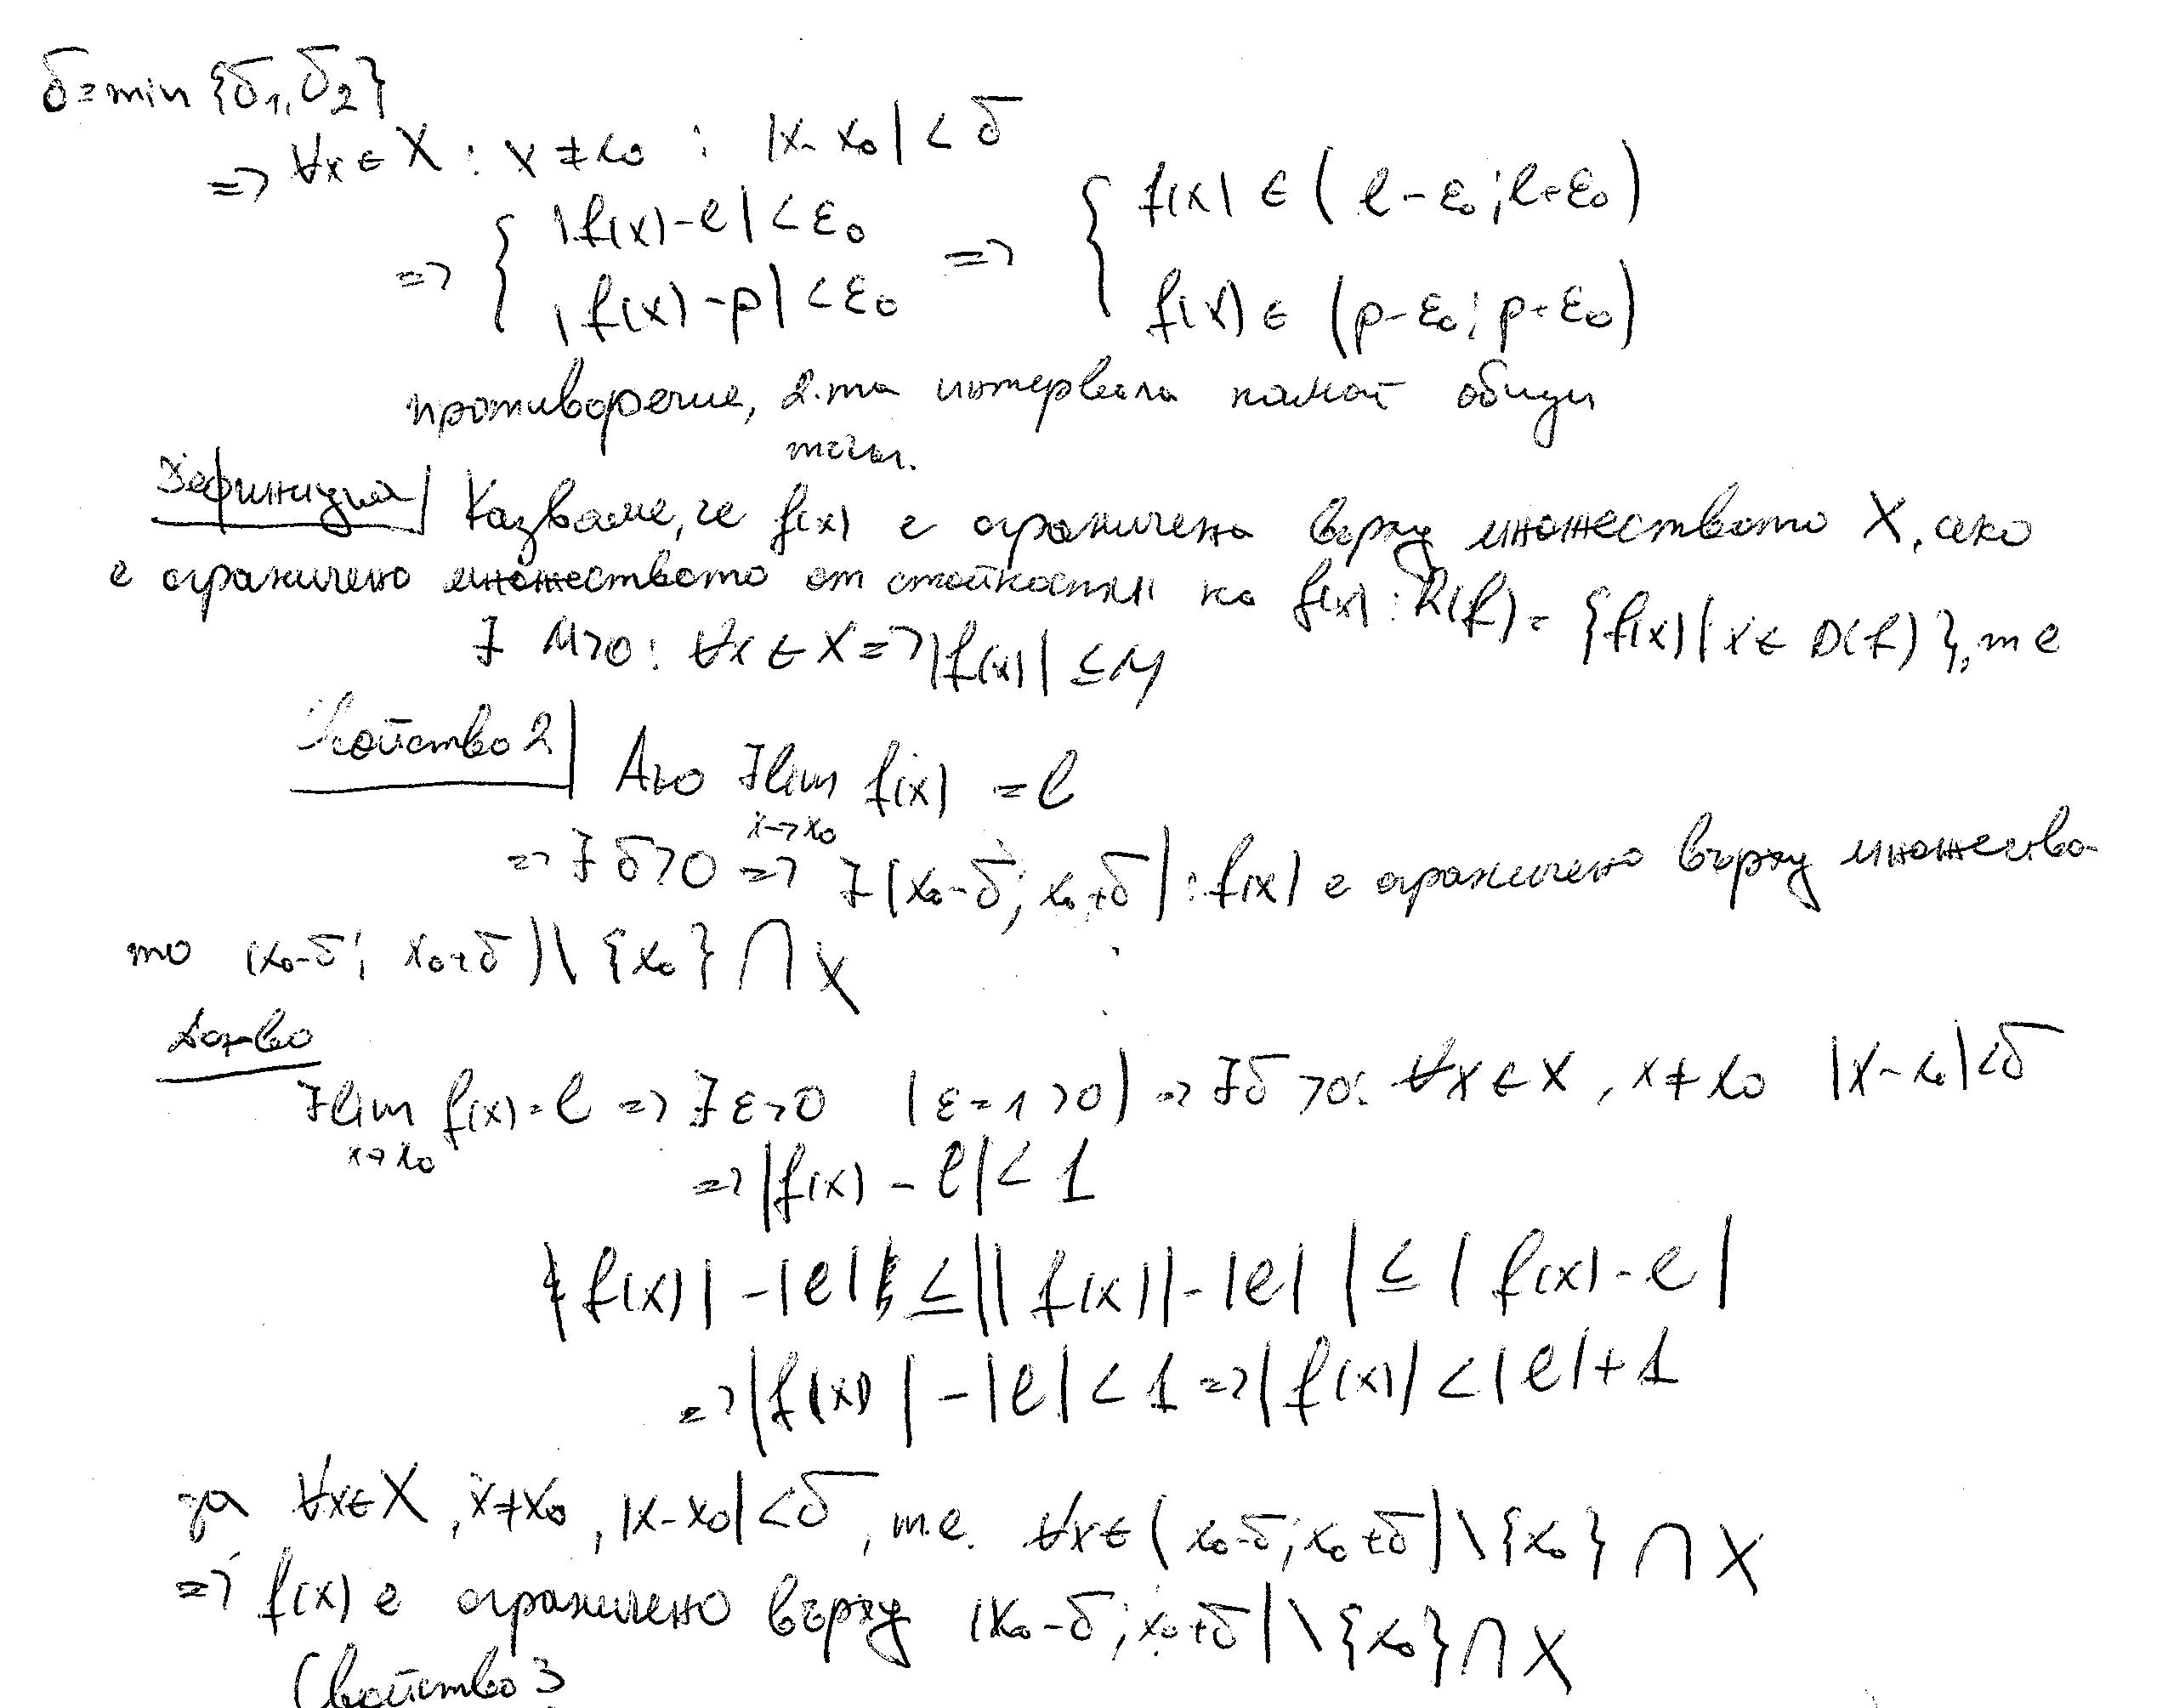 δ=min {δ₁,δ₂}
=> ∀x ∈ X : x ≠ x₀ : |x-x₀| < δ
=> { |f(x)-l| < ε₀ => { f(x) ∈ (l-ε₀; l+ε₀)
|f(x)-p| < ε₀ f(x) ∈ (p-ε₀; p+ε₀)
противоречие, 2-та интервала нямат общи
точки.
Дефиниция| Казваме, че f(x) е ограничена върху множеството X, ако
е ограничено множеството от стойности на f(x) : R(f) = {f(x) | x ∈ D(f)}, т е
∃ M>0 : ∀x ∈ X => |f(x)| ≤ M
Свойство 2| Ако ∃lim f(x) = l
x->x₀
=> ∃ δ>0 => ∃ (x₀-δ; x₀+δ) : f(x) е ограничено върху множество
то (x₀-δ; x₀+δ) \ {x₀} ∩ X
Док-во
∃lim f(x) = l => ∃ ε>0 (ε=1>0) => ∃δ>0 : ∀x ∈ X, x ≠ x₀ |x-x₀| < δ
x->x₀
=> |f(x) - l| < 1
|f(x)| - |l| ≤ ||f(x)| - |l|| ≤ |f(x) - l|
=> |f(x)| - |l| < 1 => |f(x)| < |l| + 1
за ∀x ∈ X, x≠x₀, |x-x₀| < δ, т.е. ∀x ∈ (x₀-δ; x₀+δ) \ {x₀} ∩ X
=> f(x) е ограничено върху (x₀-δ; x₀+δ) \ {x₀} ∩ X
Свойство 3